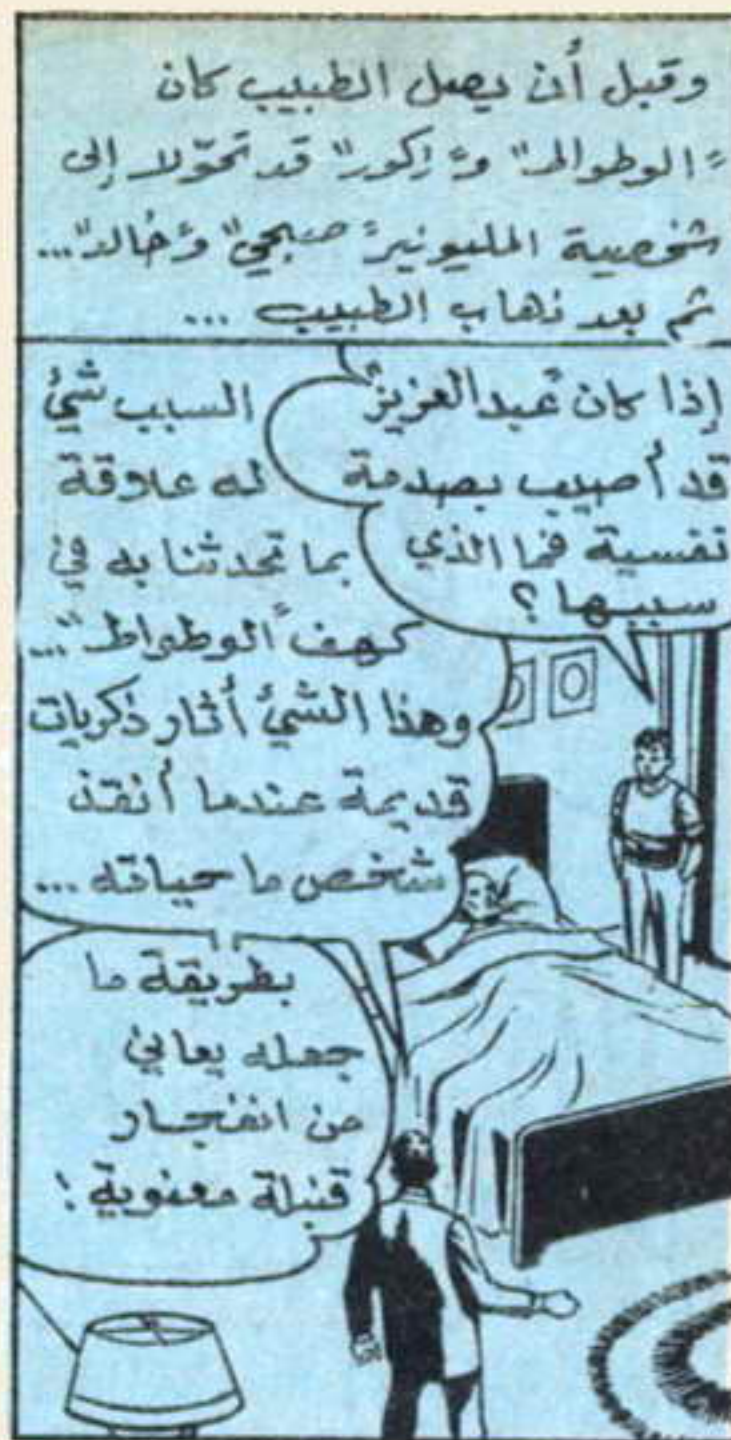 وقبل أن يصل الطبيب كان
"الوطواط" و"زكور" قد تحوّلا إلى
شخصية المليونير "صبحي" و"خالد"...
ثم بعد ذهاب الطبيب ...
إذا كان "عبد العزيز"
قد أصيب بصدمة
نفسية فما الذي
سببها ؟
السبب شيئ
له علاقة
بما تحدثنا به في
كهف "الوطواط"...
وهذا الشيئ أثار ذكريات
قديمة عندما أنقذ
شخص ما حياته ...
بطريقة ما
جعله يعاني
من انفجار
قنبلة معنوية !